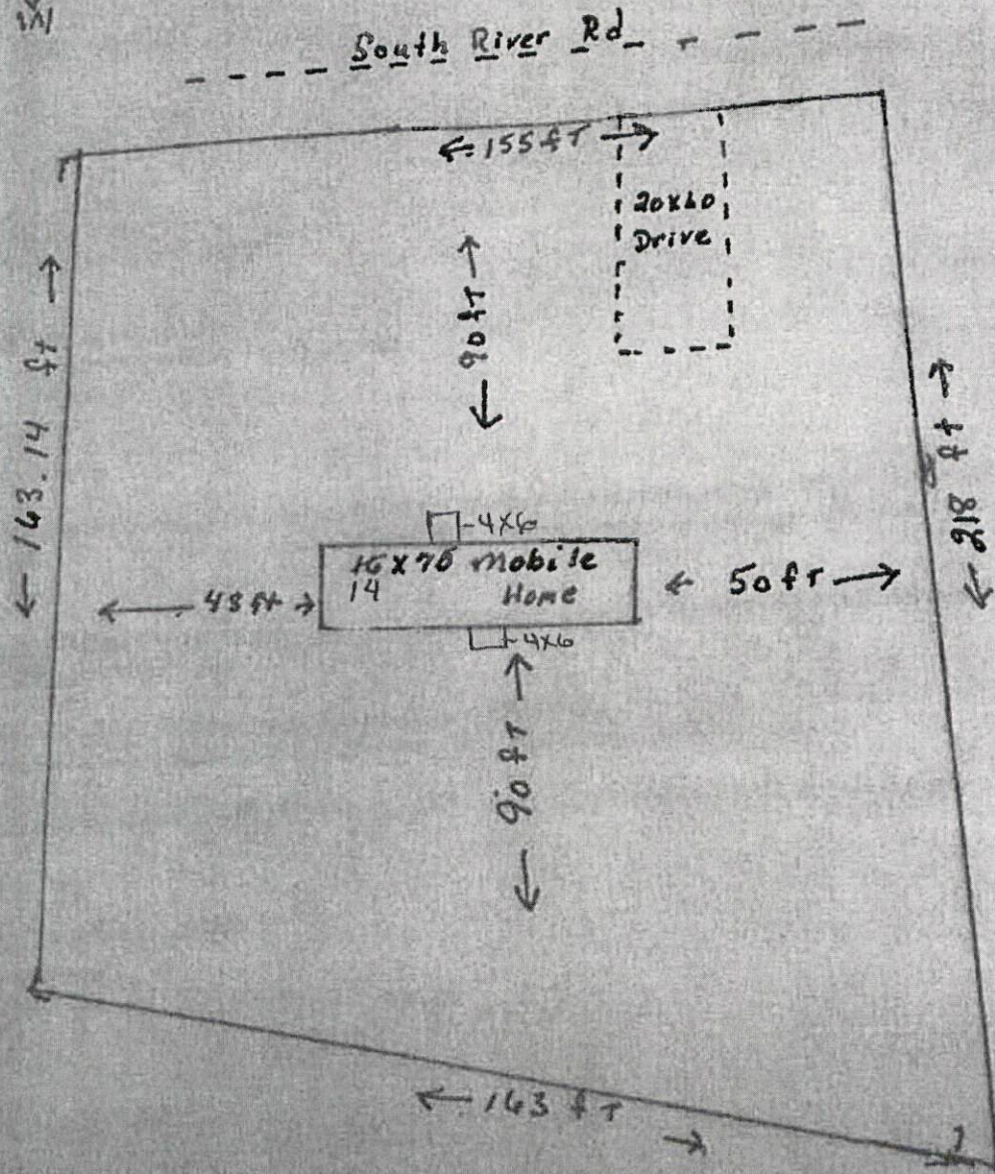 South River Rd
155 ft
20x60
Drive
90 ft
163.14 ft
218 ft
4x6
16 x 76 Mobile
14 Home
48 ft
50 ft
4x6
90 ft
163 ft